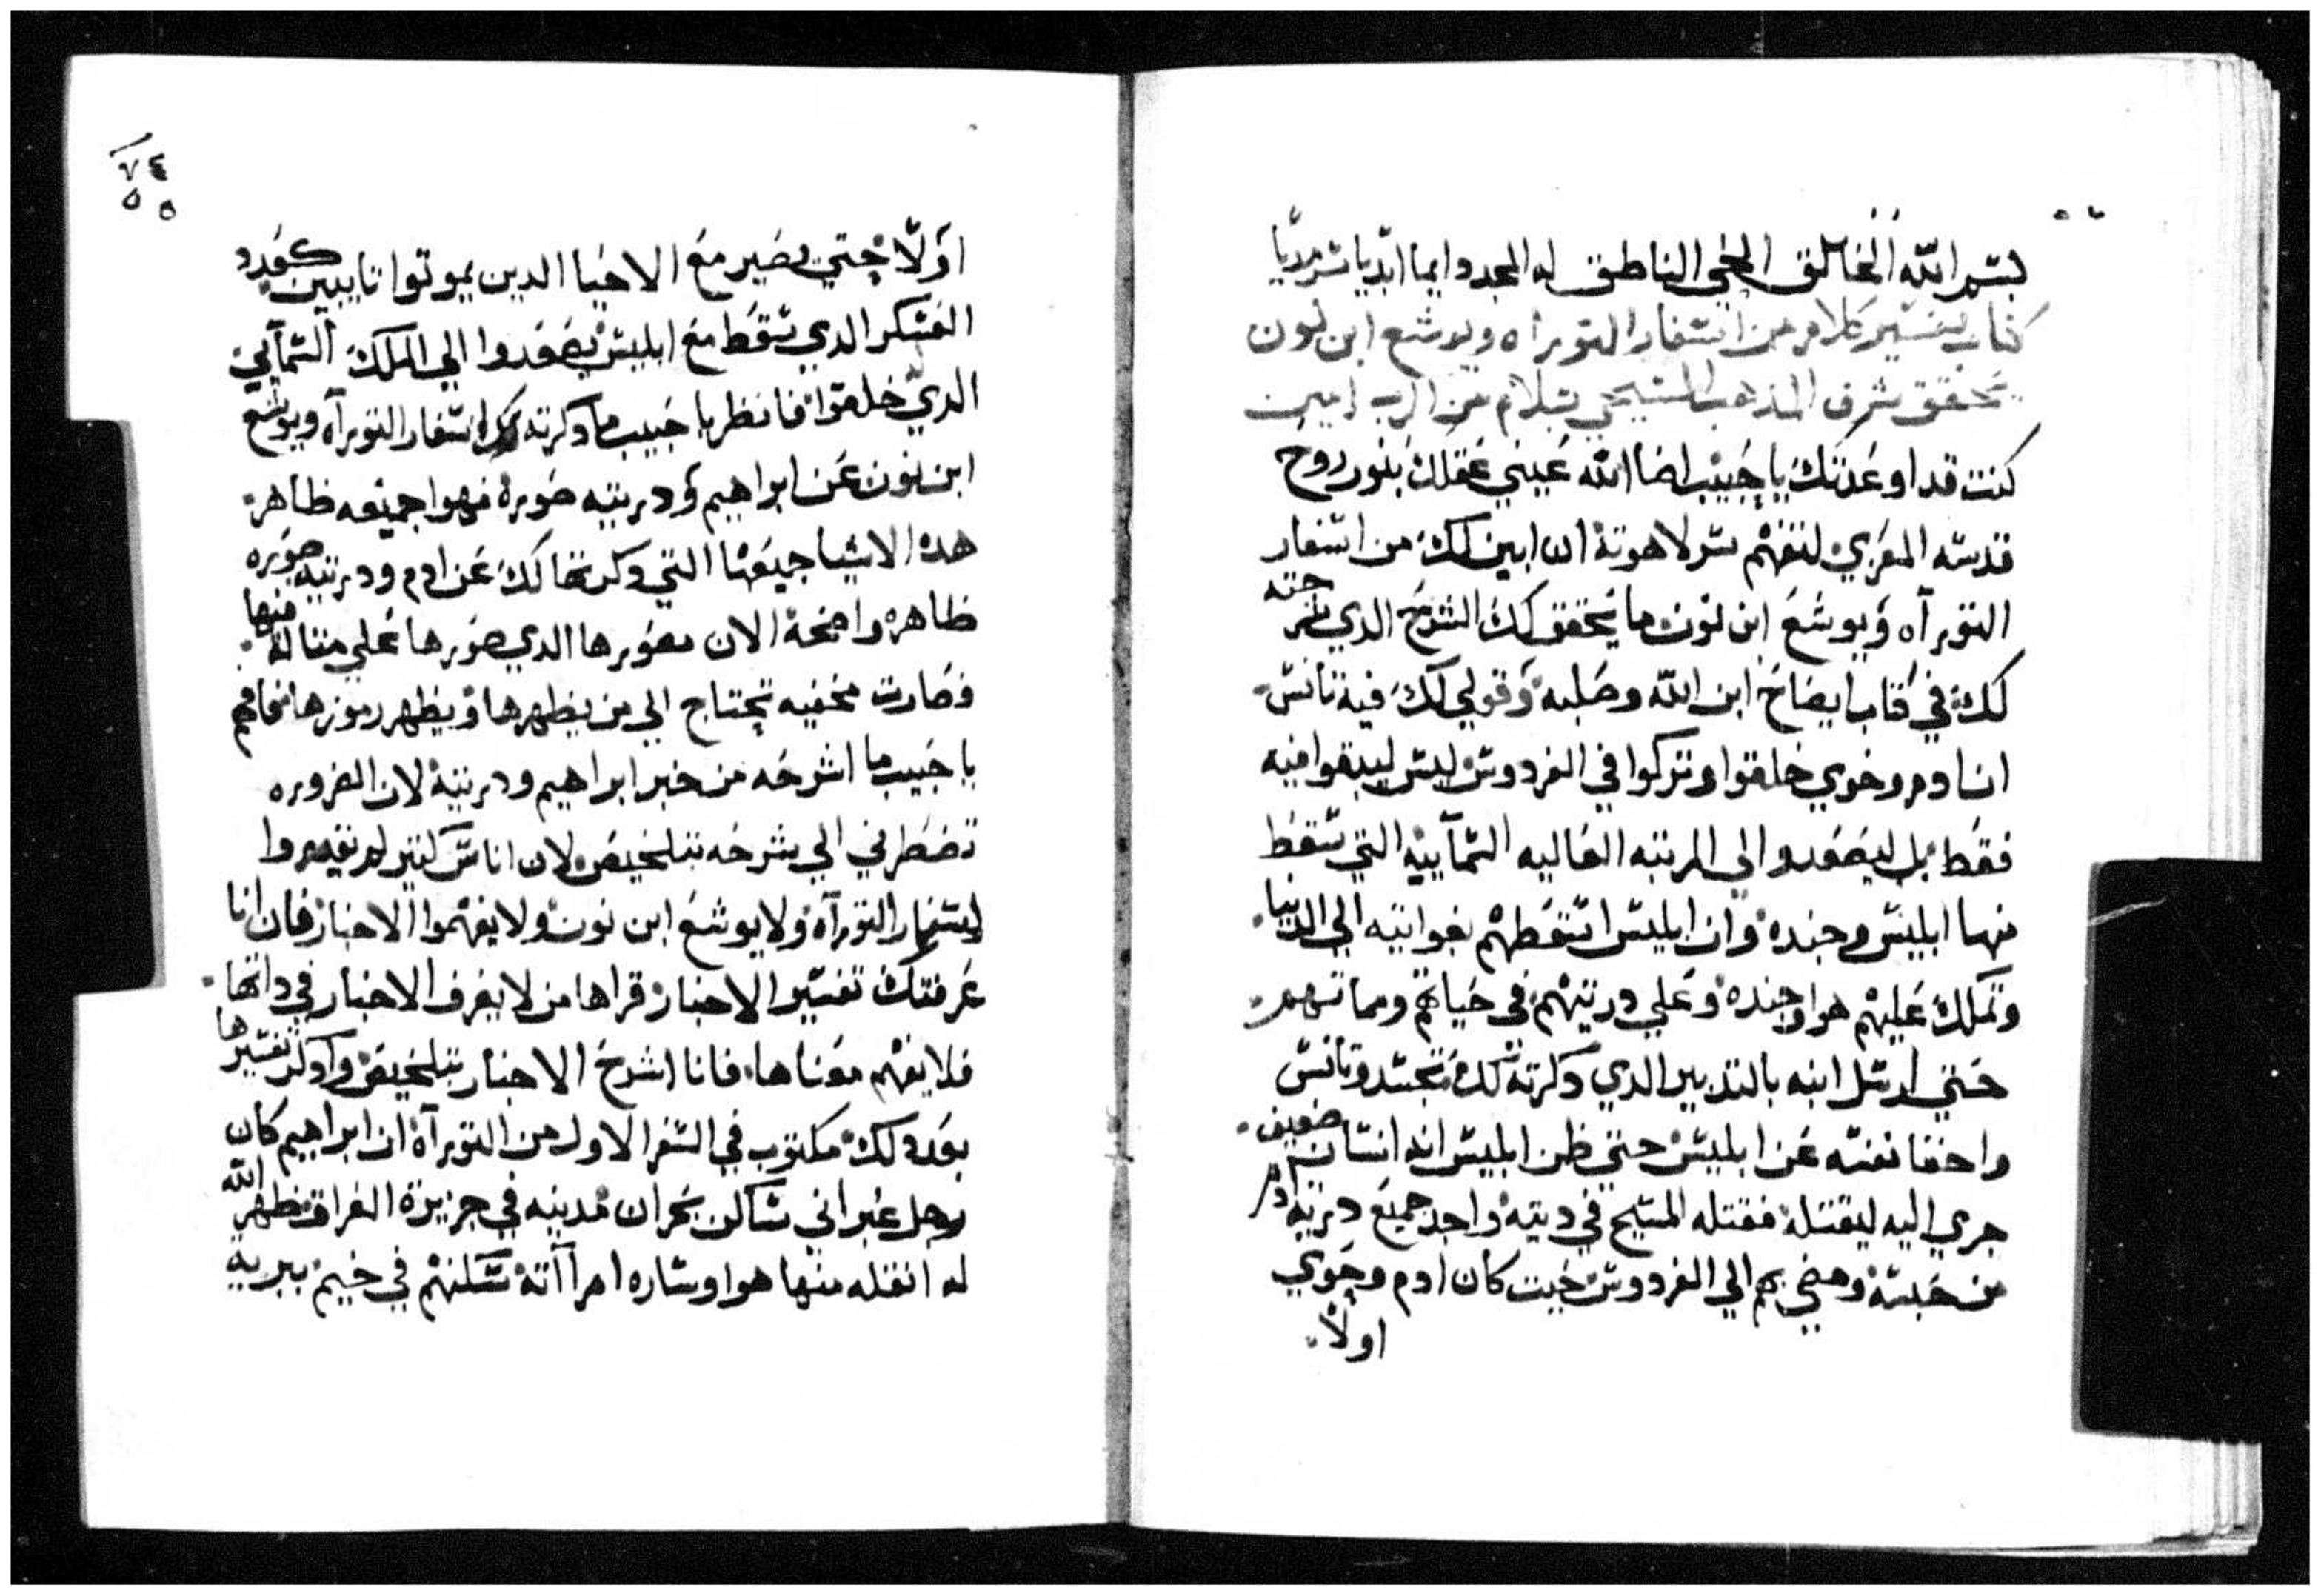 بسم الله الخالق الحي الناطق له المجد دايما ابديا سرمديا
كتاب تفسير كلام من اسفار التوراه ويوشع ابن نون
تحقق شرف المذهب المسيحي بسلام من الرب امين
كنت قد اوعدتك يا حبيب اضا الله عيني عقلك بنور روح
قدسه المعزي لتفهم سر لاهوته ان ابين لك من اسفار
التوراه ويوشع ابن نون ما يحقق لك الشرح الذي شرحته
لك في كتاب ايضاح ابن الله وصلبه وقولي لك فيه تانس
ان ادم وحوي خلقوا وتركوا في الفردوس ليس ليبقوا فيه
فقط بل ليصعدوا الى المرتبه العاليه السمآييه التي سقط
منها ابليس وجنده وان ابليس اسقطهم بغوايته الي الدنيا
وتملك عليهم هوا وجنده وعلي دريتهم في حياتهم ومماتهم
حتي ارسل ابنه بالتدبير الدي دكرته لك تجسد وتانس
واخفا نفسه عن ابليس حتي ظن ابليس انه انسان ضعيف
جري اليه ليقتله فقتله المسيح في ديته واخد جميع درية ادم
من حبسه ومضي بهم الي الفردوس حيت كان ادم وحوي
اولا
٧٤
٥٥
اولا حتي يصير مع الاحيا الدين يموتوا تايبين كعدد
العسكر الدي سقط مع ابليس يصعدوا الي الملك السمآيي
الدي خلقوا فانظر يا حبيب ما دكرته لك اسفار التوراه ويوشع
ابن نون عن ابراهيم ودريته صوره فهوا جميعه ظاهر
هده الاشيا جميعها التي دكرتها لك عن ادم ودريته صوره
ظاهره واضحة الان مصورها الدي صورها علي مثاله منها
فصارت مخفيه تحتاج الي من يظهرها ويظهر رموزها فافهم
يا حبيب ما اشرحه من خبر ابراهيم ودريته لان الضروره
تضطرني الي شرحه بتلخيص لان اناس كتير لم يقروا
اسفار التوراه ولا يوشع ابن نون ولا يفهموا الاخبار فان انا
عرفتك تفسير الاخبار قراها من لا يعرف الاخبار في داتها
فلا يفهم معناها فانا اشرح الاخبار بتلخيص وادكر تفسيرها
بعد دلك مكتوب في السفر الاول من التوراه ان ابراهيم كان
رجل عبراني ساكن بحران مدينه في جزيرة الفرات فظهر الله
له انقله منها هوا وساره امرآته سكنهم في خيم ببريه